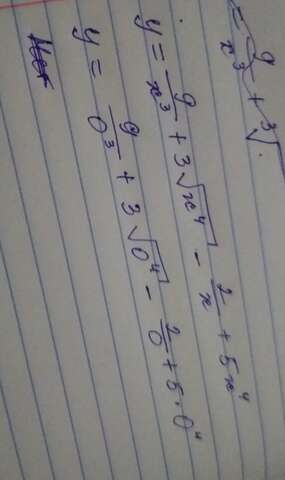 = 9/x³ + ³√
y = 9/x³ + 3√x⁴ - 2/x + 5x⁴
y = 9/0³ + 3√0⁴ - 2/0 + 5·0⁴